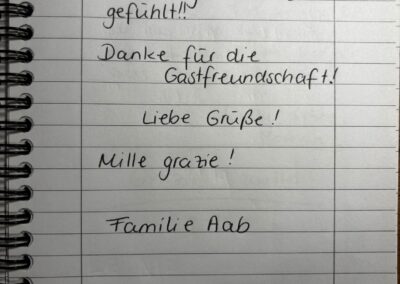 gefühlt!!
Danke für die
Gastfreundschaft!
Liebe Grüße!
Mille grazie!
Familie Aab